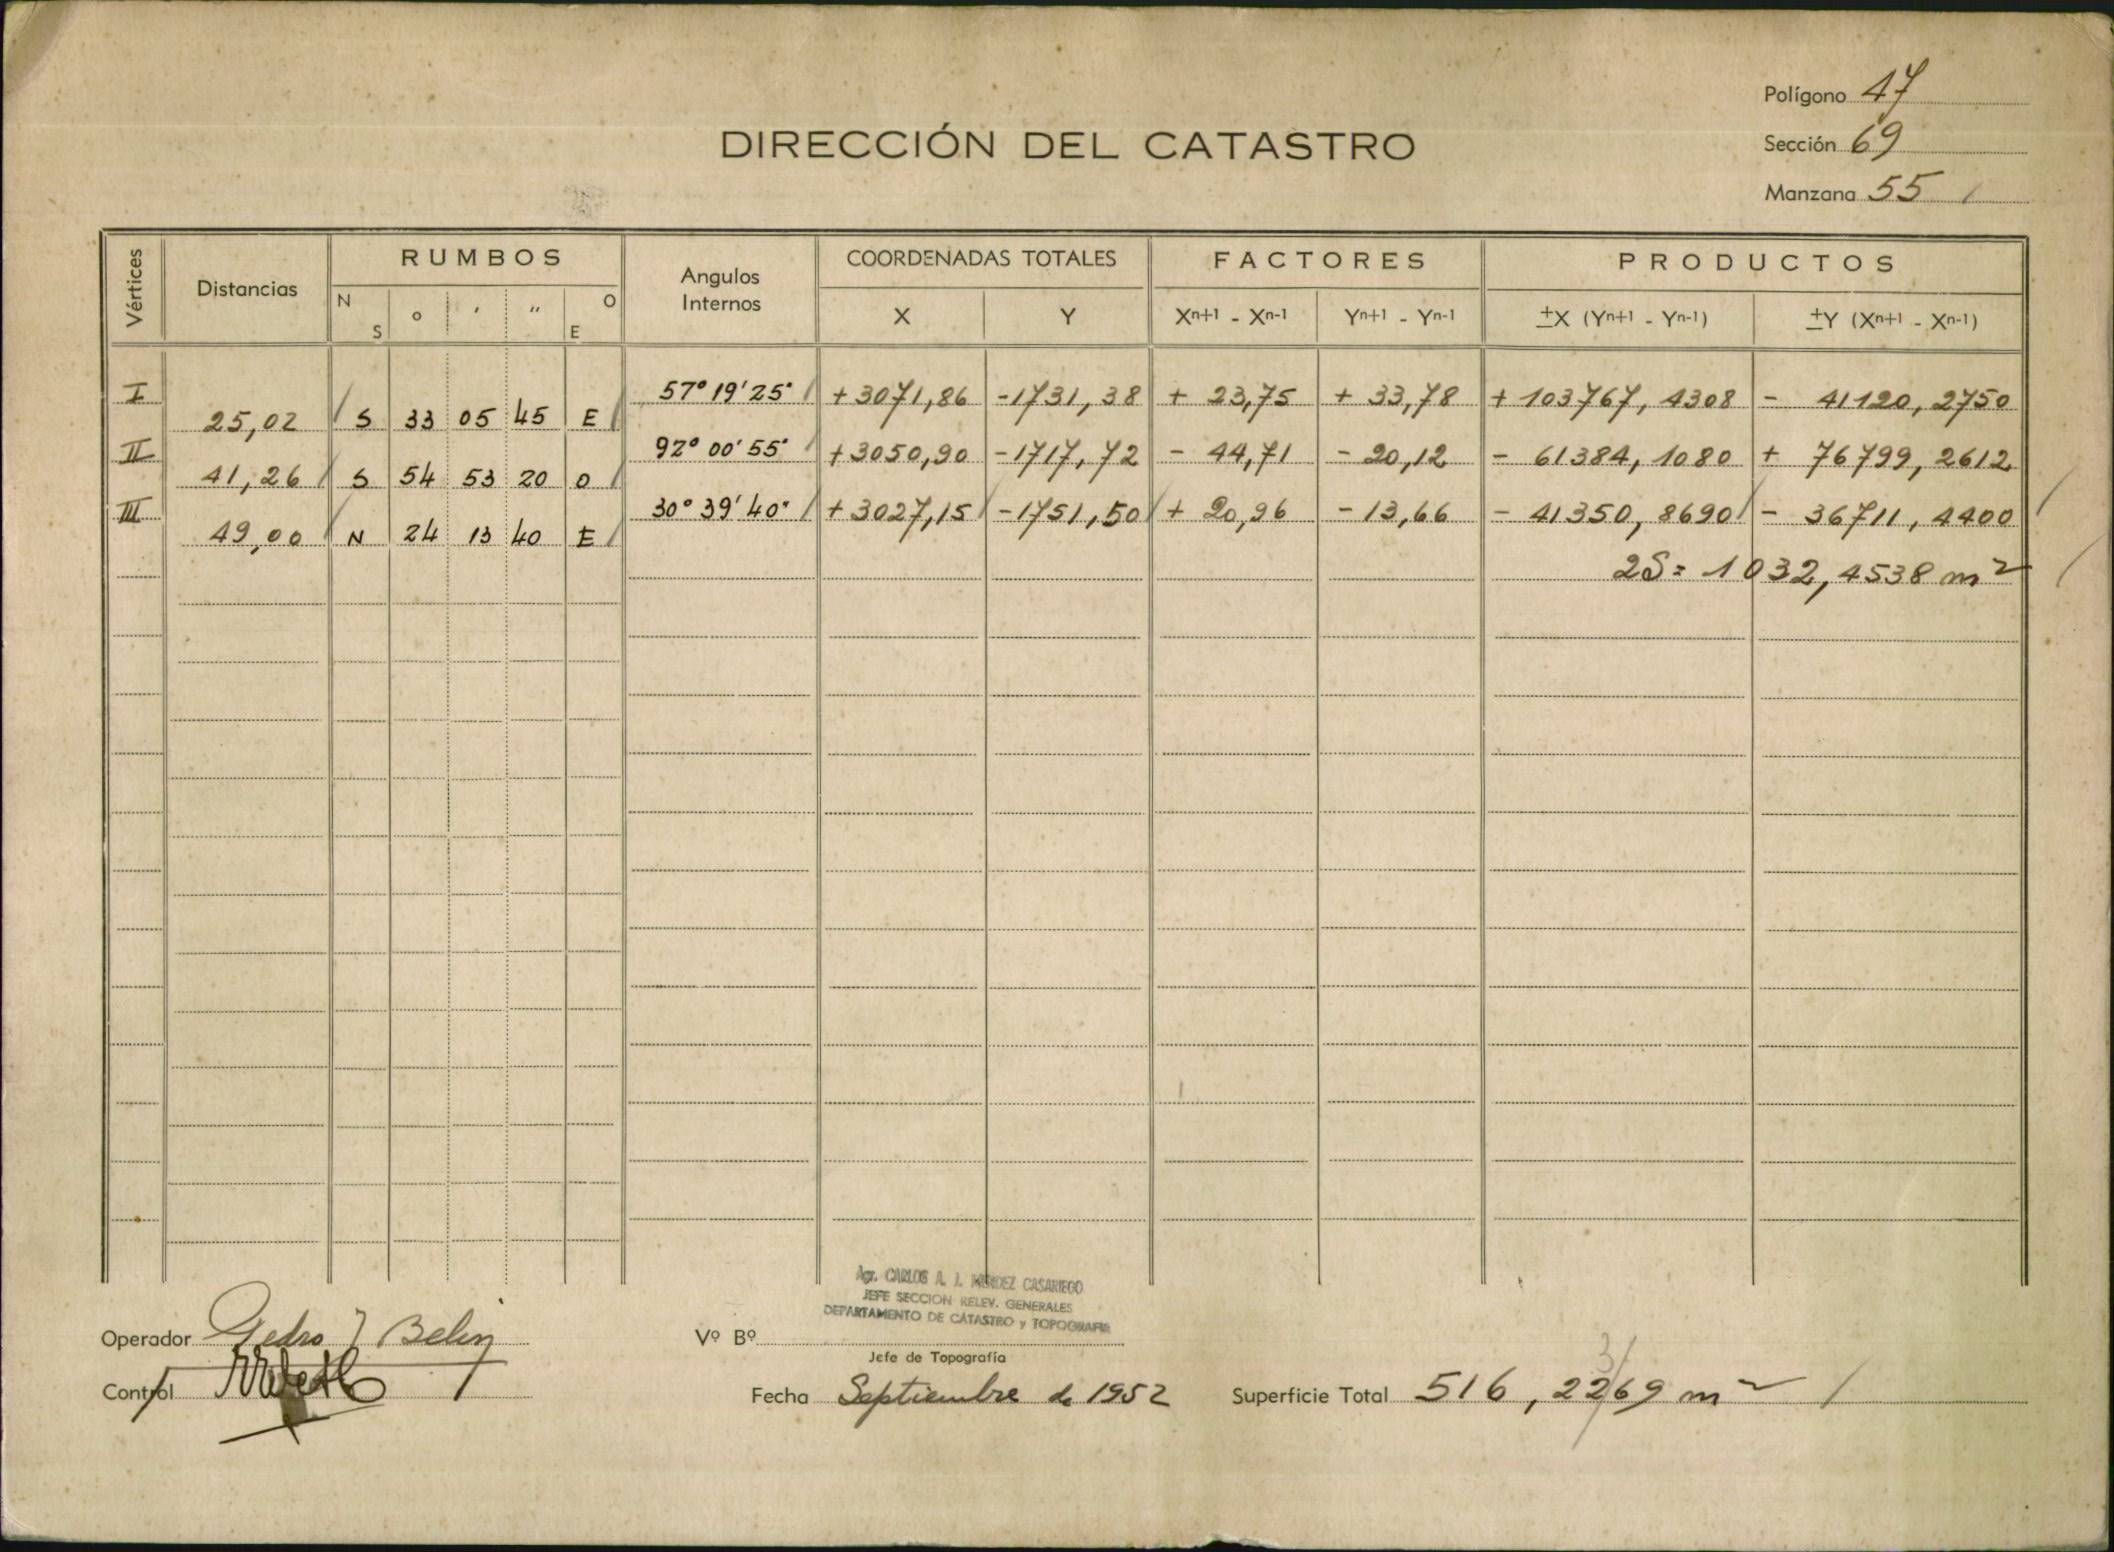 Polígono 47
DIRECCIÓN DEL CATASTRO
Sección 69
Manzana 55
Vértices Distancias RUMBOS Angulos Internos COORDENADAS TOTALES FACTORES PRODUCTOS
N S o ' '' O E X Y Xn+1 - Xn-1 Yn+1 - Yn-1 ±X (Yn+1 - Yn-1) ±Y (Xn+1 - Xn-1)
I 57° 19' 25" +3071,86 -1731,38 + 23,75 + 33,78 + 103767,4308 - 41120,2750
25,02 S 33 05 45 E
II 92° 00' 55" +3050,90 -1717,72 - 44,71 - 20,12 - 61384,1080 + 76799,2612
41,26 S 54 53 20 O
III 30° 39' 40" +3027,15 -1751,50 + 20,96 - 13,66 - 41350,8690 - 36711,4400
49,00 N 24 13 40 E
2S = 1032,4538 m²
Agr. CARLOS A. J. MENDEZ CASARIEGO
JEFE SECCION RELEV. GENERALES
DEPARTAMENTO DE CATASTRO y TOPOGRAFIA
Operador Pedro J Belin
Vº Bº
Jefe de Topografía
Control
Fecha Septiembre de 1952
3
Superficie Total 516,2269 m²